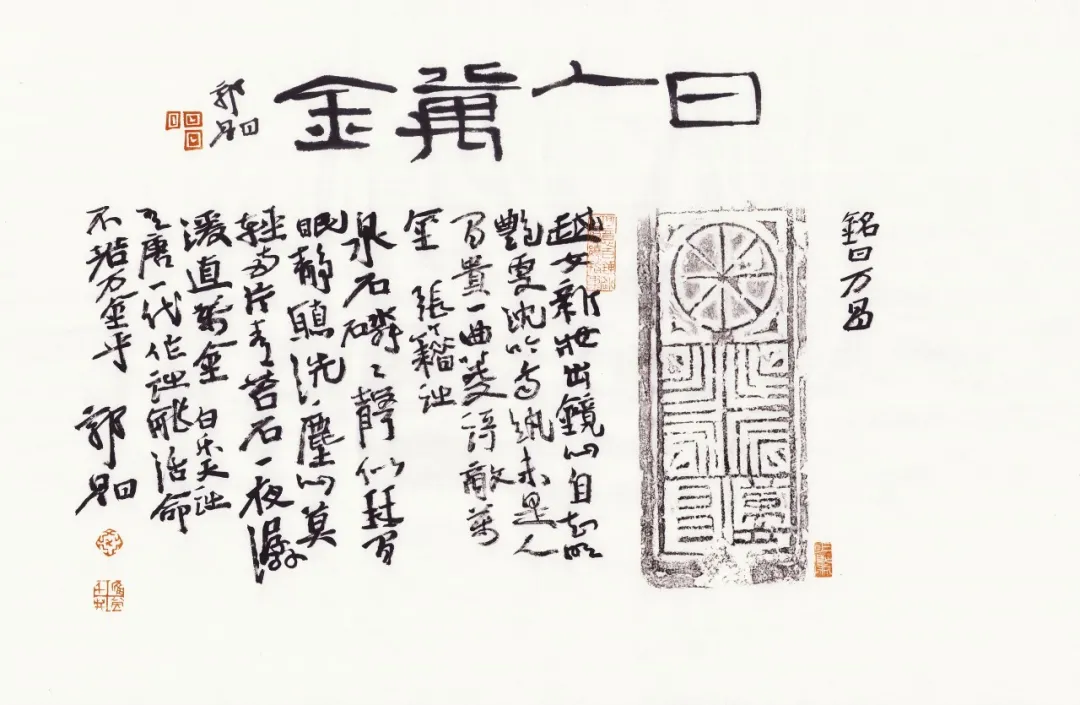 日入萬金
郭
銘曰万昌
越女新妝出鏡心自知明
艷更沈吟齊紈未足人
間貴一曲菱謌敵萬
金 張籍詩
泉石磷〻聲似琴間
眠靜聽洗塵心莫
輕兩片青苔石一夜潺
湲直萬金 白樂天詩
唐一代作詩能活命
不 万金乎 郭